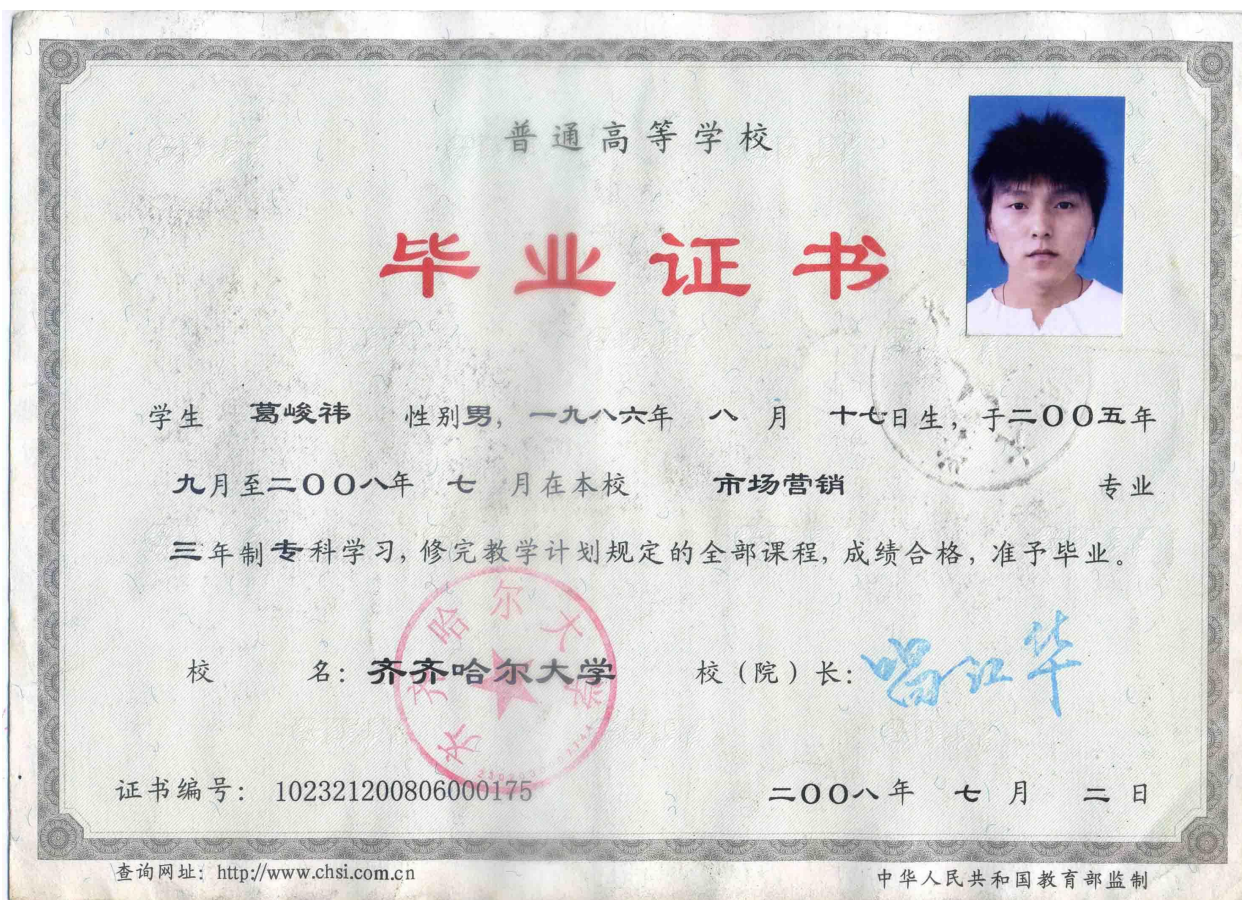 普通高等学校
毕业证书
学生 葛峻祎 性别男，一九八六年 八 月 十七日生，于二〇〇五年
九月至二〇〇八年 七 月在本校 市场营销 专业
三年制专科学习，修完教学计划规定的全部课程，成绩合格，准予毕业。
校 名：齐齐哈尔大学 校（院）长：
齐齐哈尔大学
证书编号： 102321200806000175 二〇〇八年 七 月 二 日
查询网址：http://www.chsi.com.cn 中华人民共和国教育部监制